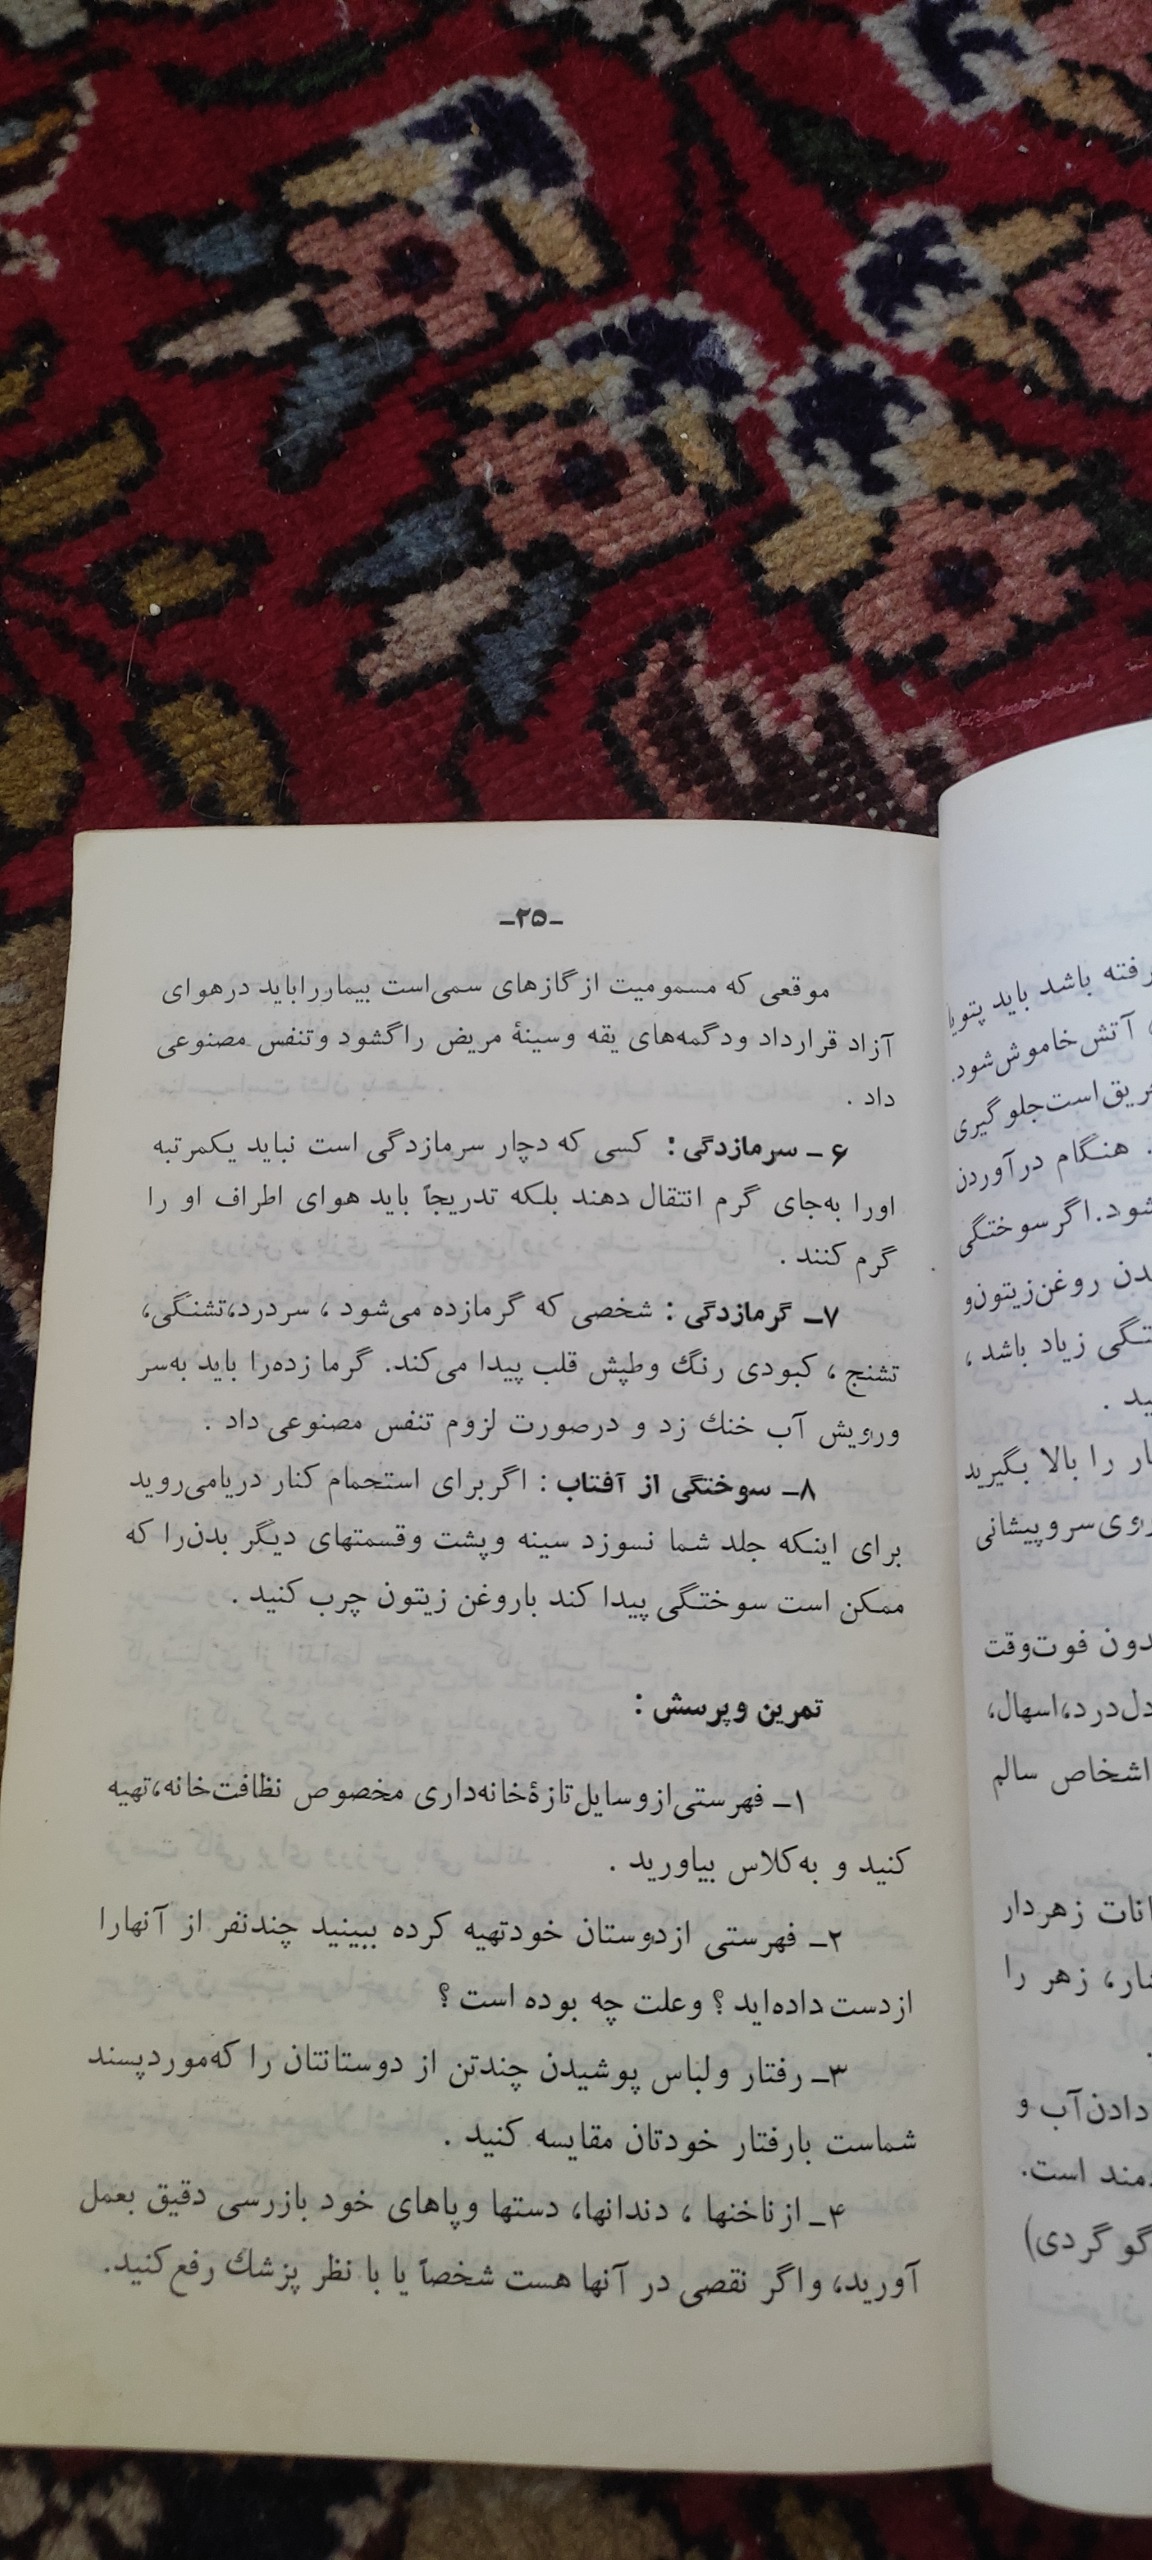 ـ۲۵ـ
موقعی که مسمومیت از گازهای سمی‌است بیمارراباید درهوای
آزاد قرارداد ودگمه‌های یقه وسینهٔ مریض راگشود وتنفس مصنوعی
داد .
۶ ـ سرمازدگی : کسی که دچار سرمازدگی است نباید یکمرتبه
اورا به‌جای گرم انتقال دهند بلکه تدریجاً باید هوای اطراف او را
گرم کنند .
۷ـ گرمازدگی : شخصی که گرمازده می‌شود ، سردرد،تشنگی،
تشنج ، کبودی رنگ وطپش قلب پیدا می‌کند. گرما زده‌را باید به‌سر
ورویش آب خنك زد و درصورت لزوم تنفس مصنوعی داد .
۸ـ سوختگی از آفتاب : اگربرای استحمام کنار دریامی‌روید
برای اینکه جلد شما نسوزد سینه وپشت وقسمتهای دیگر بدن‌را که
ممکن است سوختگی پیدا کند باروغن زیتون چرب کنید .
تمرین وپرسش :
۱ـ فهرستی‌ازوسایل‌تازهٔ‌خانه‌داری مخصوص نظافت‌خانه،تهیه
کنید و به‌کلاس بیاورید .
۲ـ فهرستی ازدوستان خودتهیه کرده ببینید چندنفر از آنهارا
ازدست داده‌اید ؟ وعلت چه بوده است ؟
۳ـ رفتار ولباس پوشیدن چندتن از دوستانتان را که‌موردپسند
شماست بارفتار خودتان مقایسه کنید .
۴ـ ازناخنها ، دندانها، دستها وپاهای خود بازرسی دقیق بعمل
آورید، واگر نقصی در آنها هست شخصاً یا با نظر پزشك رفع‌کنید.
رفته باشد باید پتویا
آتش‌خاموش‌شود.
است‌جلوگیری
. هنگام درآوردن
شود.اگرسوختگی
روغن‌زیتون‌و
زیاد باشد ،
را بالا بگیرید
روی‌سروپیشانی
فوت‌وقت
دل‌درد،اسهال،
اشخاص سالم
زهردار
زهر را
دادن‌آب و
است.
گوگردی)